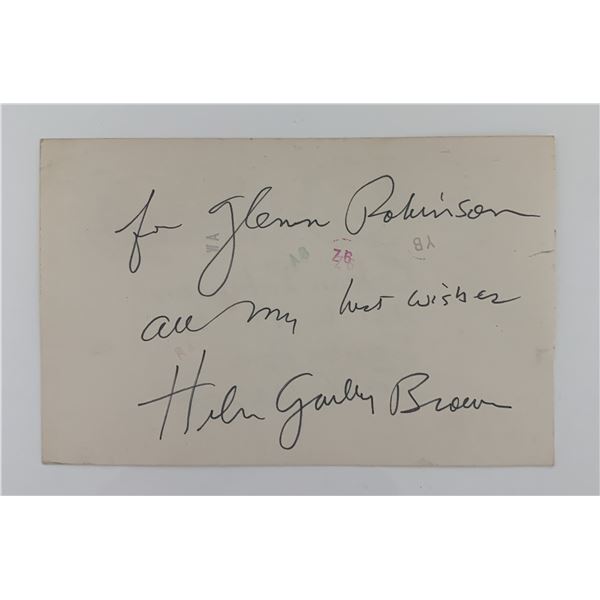 for Glenn Robinson
WA 8A ZB YB
all my best wishes
Helen Gurley Brown